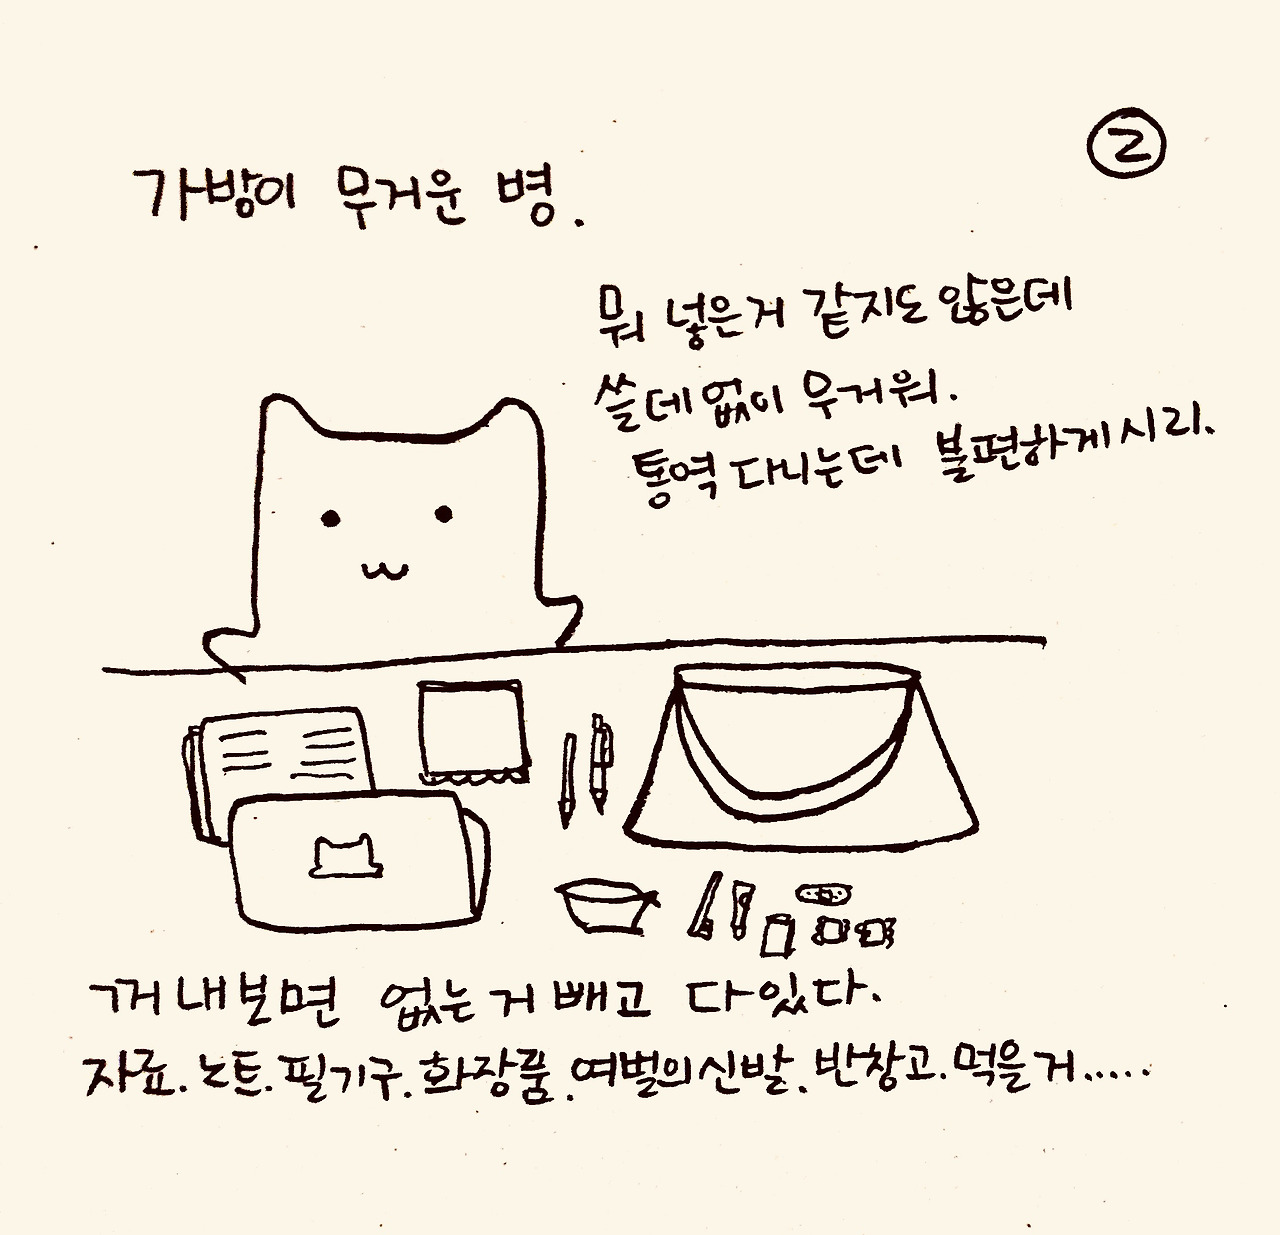 가방이 무거운 병.
②
뭐 넣은거 같지도 않은데
쓸데없이 무거워.
통역 다니는데 불편하게시리.
꺼내보면 없는거 빼고 다있다.
자료. 노트. 필기구. 화장품. 여벌의신발. 반창고. 먹을거.....